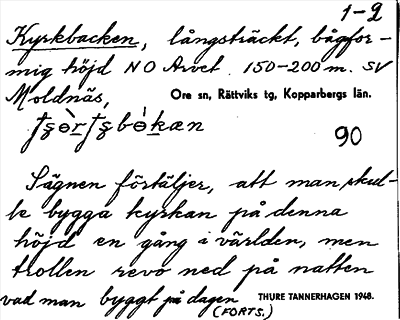 1-2
Kyrkbacken, långsträckt, bågfor-
mig höjd NO Arvet. 150-200 m. SV
Moldnäs, Ore sn, Rättviks tg, Kopparbergs län.
90
Sägnen förtäljer, att man skul-
le bygga kyrkan på denna
höjd en gång i världen, men
trollen revo ned på natten
vad man byggt på dagen THURE TANNERHAGEN 1948.
(FORTS.)